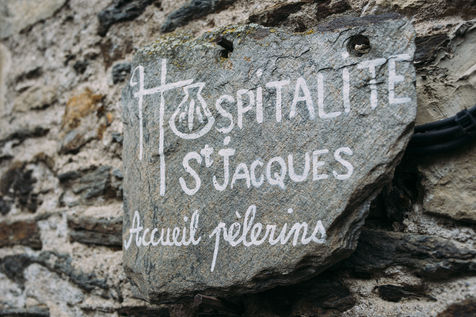 HOSPITALITE
St JACQUES
Accueil pèlerins